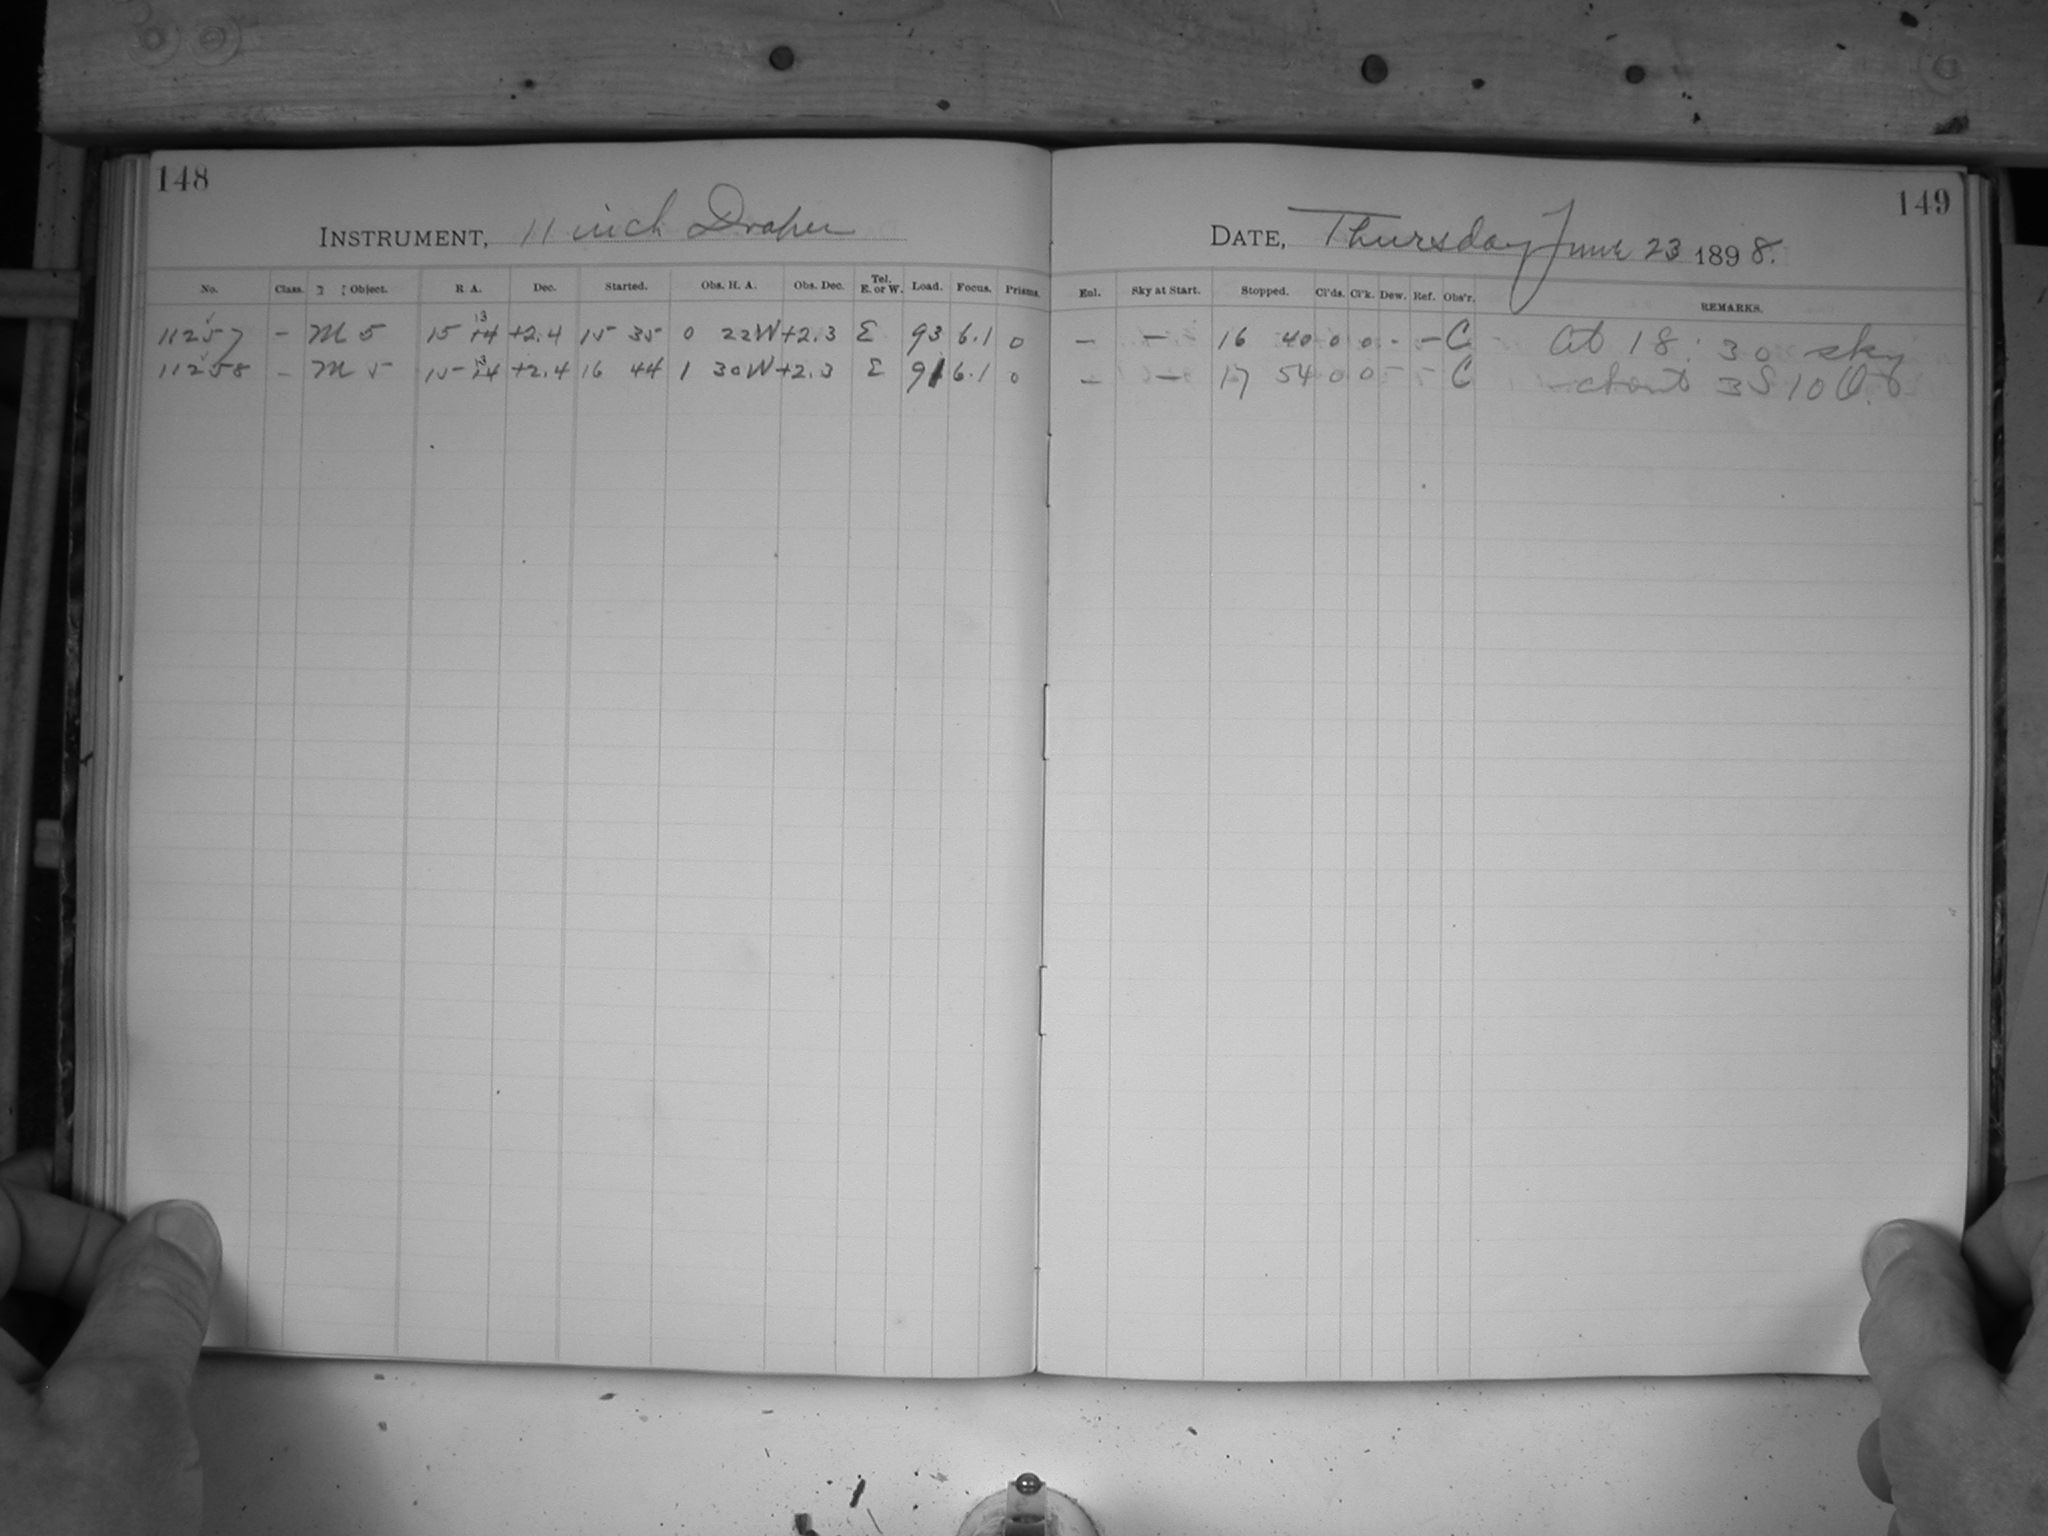 148
INSTRUMENT, 11 inch Draper
No. Class. Object. R. A. Dec. Started. Obs. H. A. Obs. Dec. Tel. E. or W. Load. Focus. Prisms.
11257 – M 5 15 14 13 +2.4 15 35 0 22W +2.3 E 93 6.1 0
11258 – M 5 15 14 13 +2.4 16 44 1 30W +2.3 E 91 6.1 0
149
DATE, Thursday June 23 1898.
Enl. Sky at Start. Stopped. Cl'ds. Cl'k. Dew. Ref. Obs'r. REMARKS.
– – 16 40 0 0 - – C At 18:30 sky
– – 17 54 0 0 - - C about 3S 10